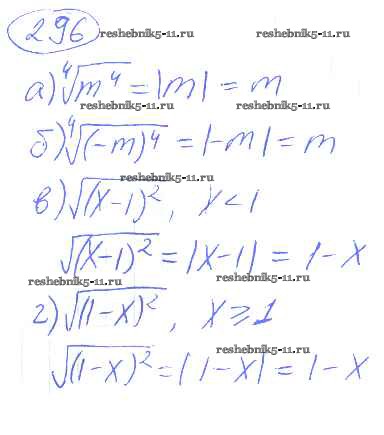 296 reshebnik5-11.ru
а) ⁴√m⁴ = |m| = m
reshebnik5-11.ru reshebnik5-11.ru
б) ⁴√(-m)⁴ = |-m| = m
reshebnik5-11.ru
в) √(x-1)², x < 1
reshebnik5-11.ru
√(x-1)² = |x-1| = 1-x
reshebnik5-11.ru reshebnik5-11.ru
г) √(1-x)², x ≥ 1
reshebnik5-11.ru
√(1-x)² = |1-x| = 1-x
reshebnik5-11.ru